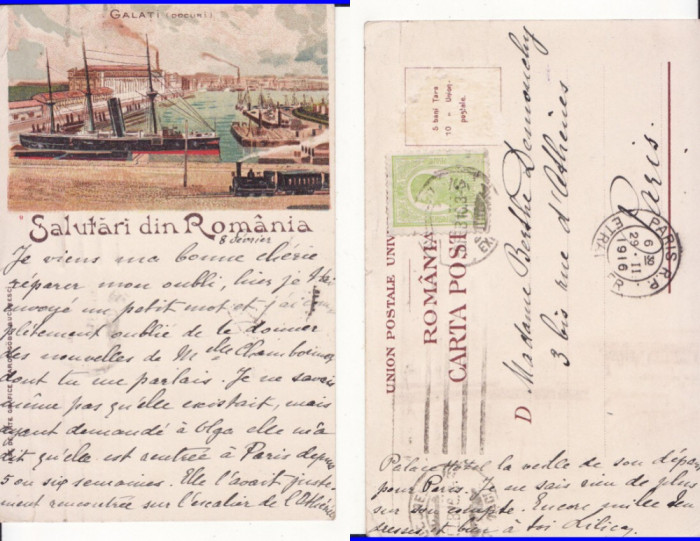 GALATI (DOCURI)
Salutări din România
8 février
Je viens ma bonne chérie
réparer mon oubli, hier je t'ai
envoyé un petit mot et j'ai com
plètement oublié de te donner
des nouvelles de Mlle
dont tu me parlais. Je ne savais
même pas qu'elle existait, mais
ayant demandé à Olga elle m'a
dit qu'elle est rentrée à Paris depuis
5 ou six semaines. Elle l'avait juste
ment rencontrée sur l'escalier de l'Athénée
5 bani Tara
10 = Uniun.
postale.
UNION POSTALE UNIV
ROMÂNIA
CARTA POST
D Madame Berthe
3 bis rue d'Athènes
Paris.
PARIS R.P.
6
29 - II
1916
ETRANGER
Palace Hôtel la veille de son départ
pour Paris. Je ne sais rien de plus
sur son compte. Encore mille ten
dresses et bien à toi